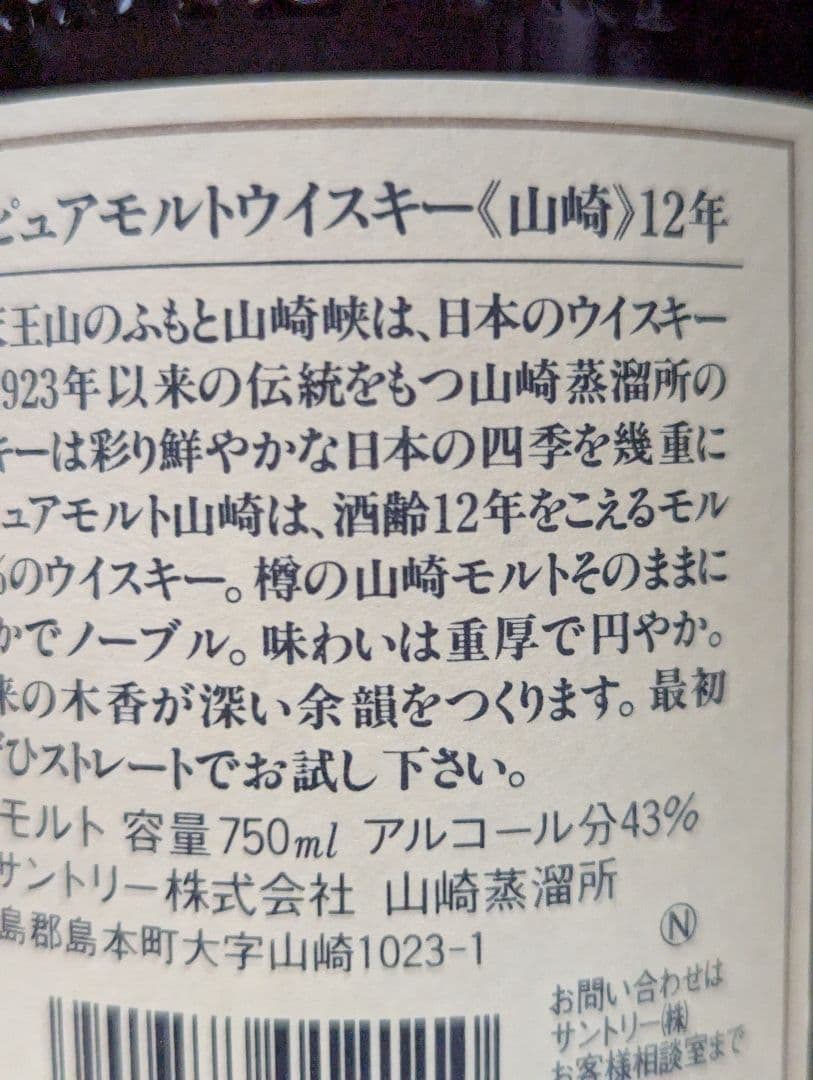 ピュアモルトウイスキー《山崎》12年
王山のふもと山崎峡は、日本のウイスキー
923年以来の伝統をもつ山崎蒸溜所の
キーは彩り鮮やかな日本の四季を幾重に
ュアモルト山崎は、酒齢12年をこえるモル
%のウイスキー。樽の山崎モルトそのままに
かでノーブル。味わいは重厚で円やか。
来の木香が深い余韻をつくります。最初
ぜひストレートでお試し下さい。
モルト 容量750ml アルコール分43%
サントリー株式会社 山崎蒸溜所
島郡島本町大字山崎1023-1
N
お問い合わせは
サントリー(株)
お客様相談室まで